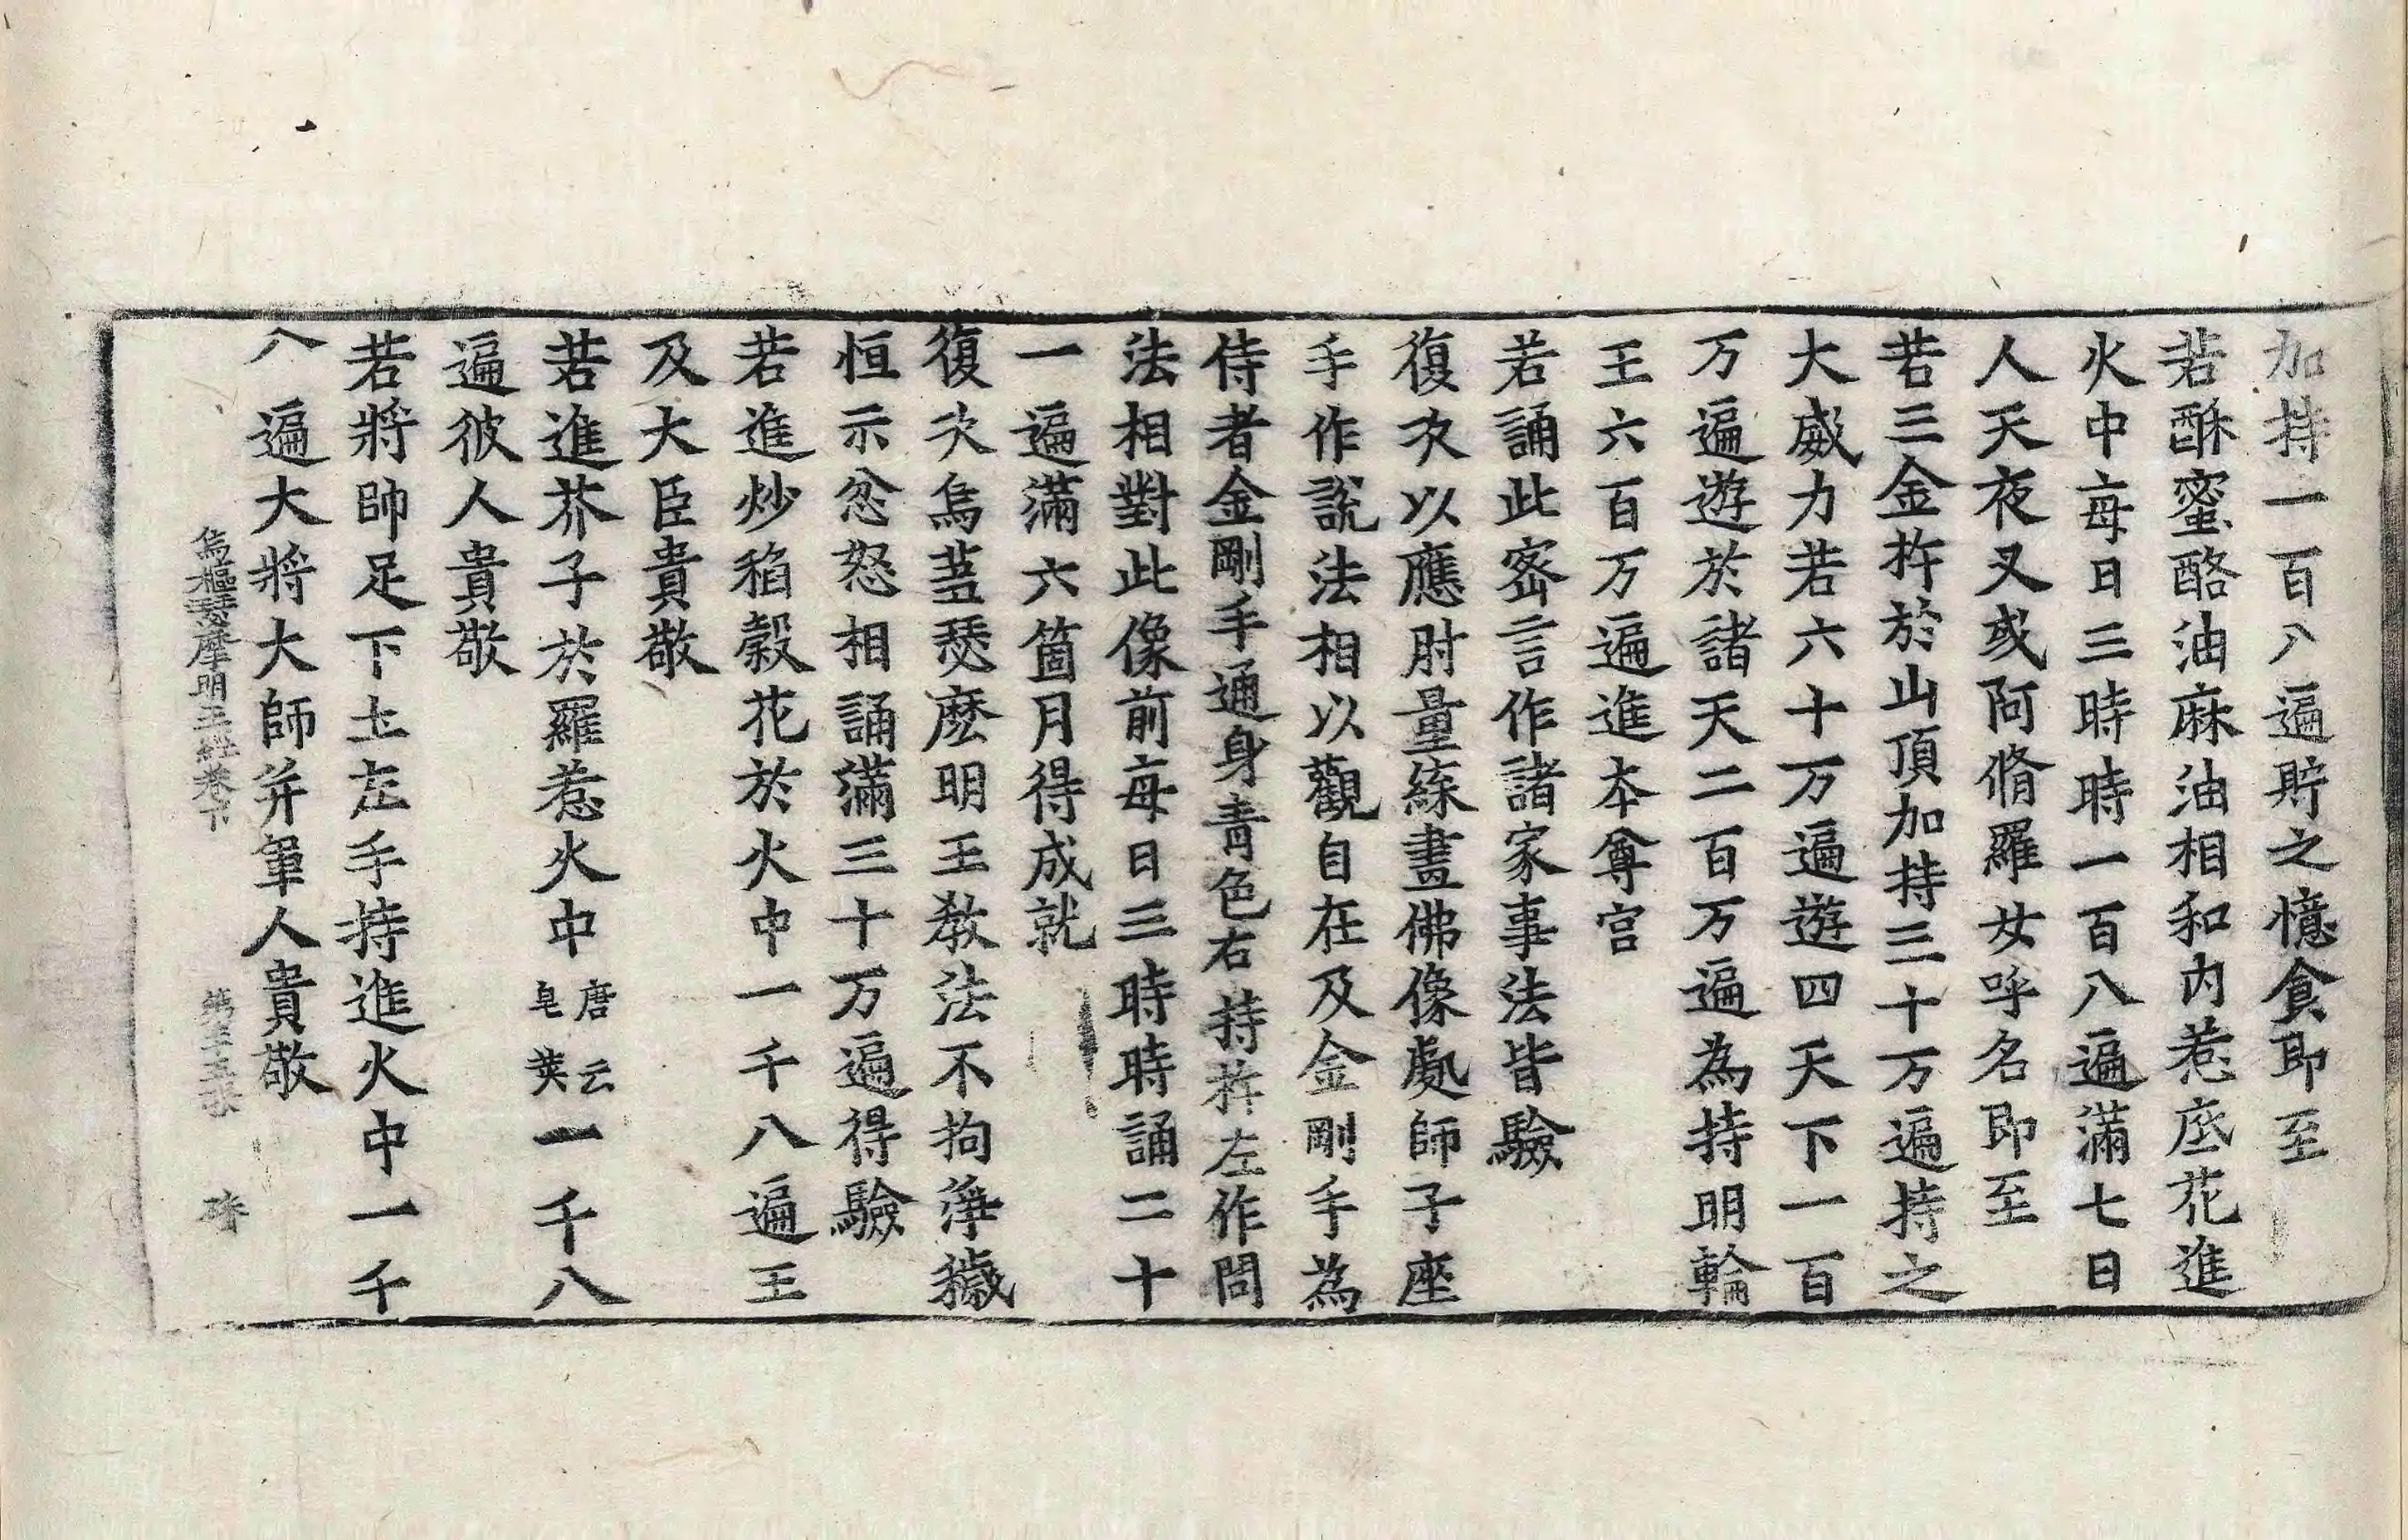 加持一百八遍貯之憶食即至
若酥蜜酪油麻油相和内惹底花進
火中每日三時時一百八遍滿七日
人天夜叉或阿脩羅女呼名即至
若三金杵於山頂加持三十万遍持之
大威力若六十万遍遊四天下一百
万遍遊於諸天二百万遍為持明輪
王六百万遍進本尊宫
若誦此密言作諸家事法皆驗
復次以應肘量緤畫佛像處師子座
手作說法相以觀自在及金剛手為
侍者金剛手通身青色右持杵左作問
法相對此像前每日三時時誦二十
一遍滿六箇月得成就
復次烏蒭瑟麽明王教法不拘淨穢
恒示忿怒相誦滿三十万遍得驗
若進炒稻穀花於火中一千八遍王
及大臣貴敬
若進芥子於羅惹火中唐云皂莢一千八
遍彼人貴敬
若將帥足下土左手持進火中一千
八遍大將大師并軍人貴敬
烏樞瑟摩明王經卷下 第 張